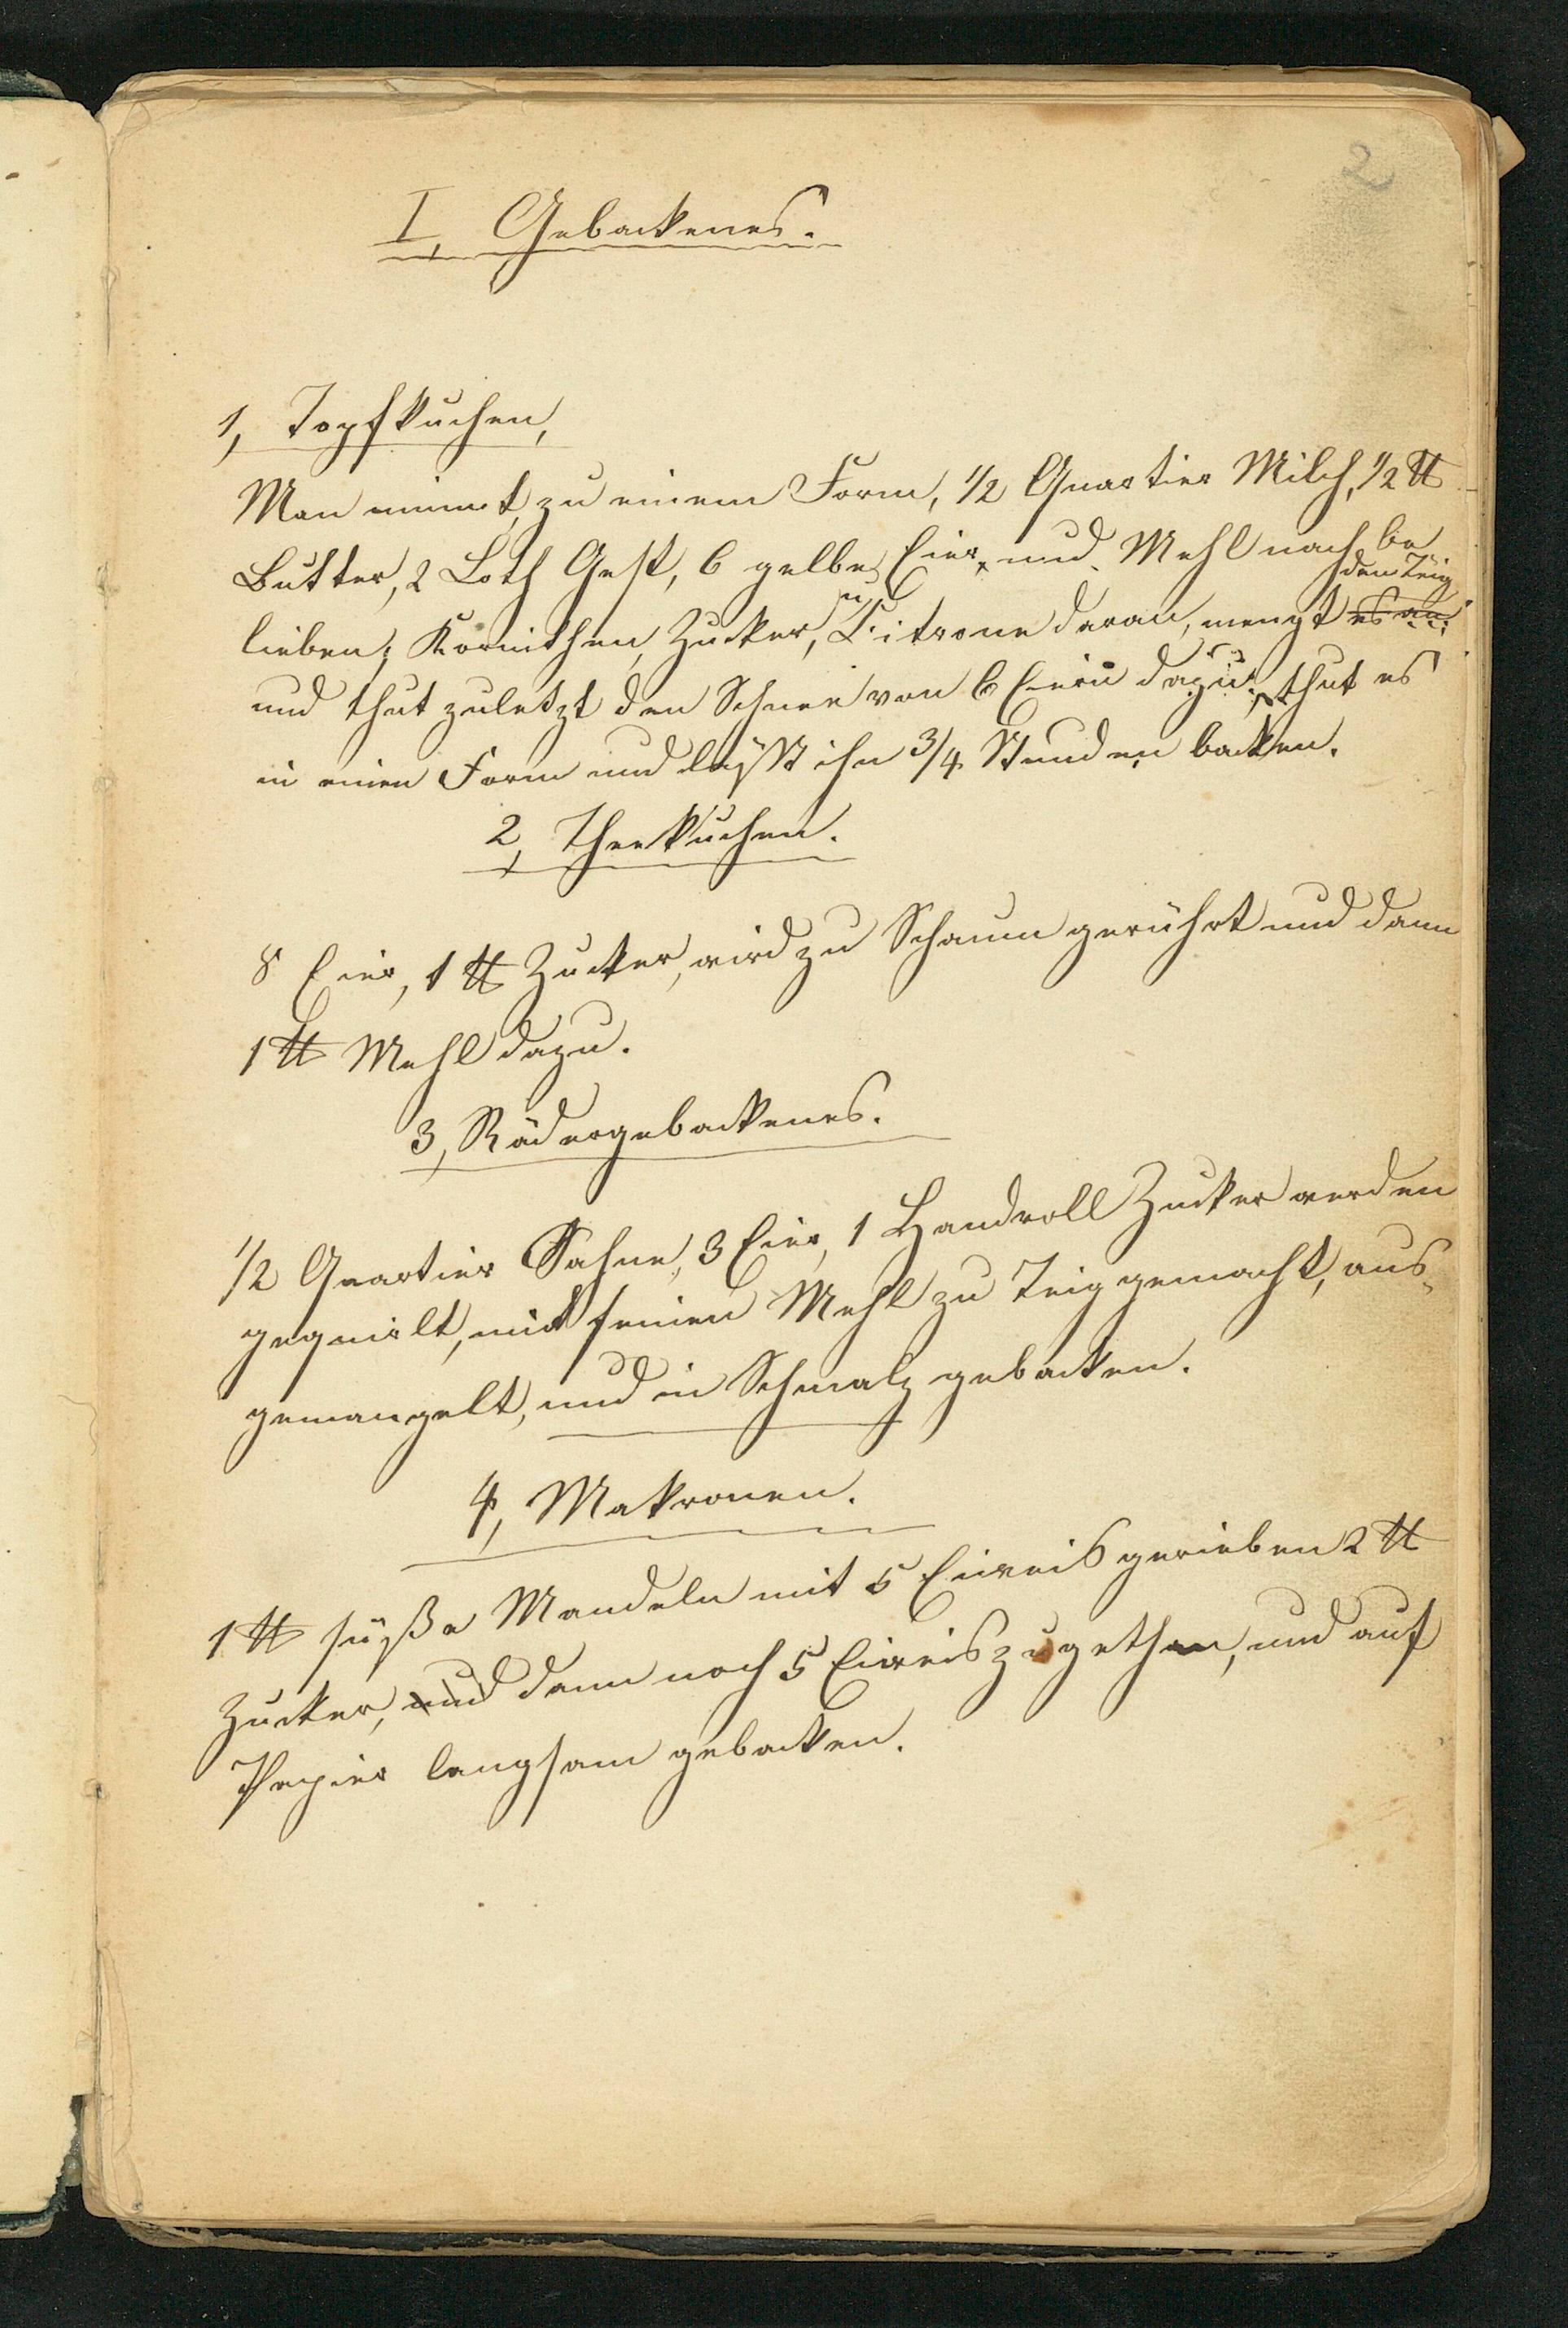 2
I, Gebackenes.
1, Topfkuchen,
Man nimmt, zu einem Form, 1/2 Quartier Milch, 1/2 ℔
Butter, 2 Loth Gest, 6 gelbe Eier und Mehl nach be
den Teig
lieben; Korinthen, Zucker, u Citrone daran, mengt es an
und thut zuletzt den Schnee von 6 Eiern dazu; thut es
in einen Form und läßt ihn 3/4 Stunden backen.
2, Theekuchen.
8 Eier, 1 ℔ Zucker, wird zu Schaum gerührt und dann
1 ℔ Mehl dazu.
3, Rädergebackenes.
1/2 Quartier Sahne, 3 Eier, 1 Handvoll Zucker werden
gequirlt, mit feinen Mehl zu Teig gemacht, aus-
gemangelt, und in Schmalz gebacken.
4, Makronen.
1 ℔ süße Mandeln mit 5 Eiweis gerieben 2 ℔
Zucker, und dann noch 5 Eiweis zugethan, und auf
Papier langsam gebacken.